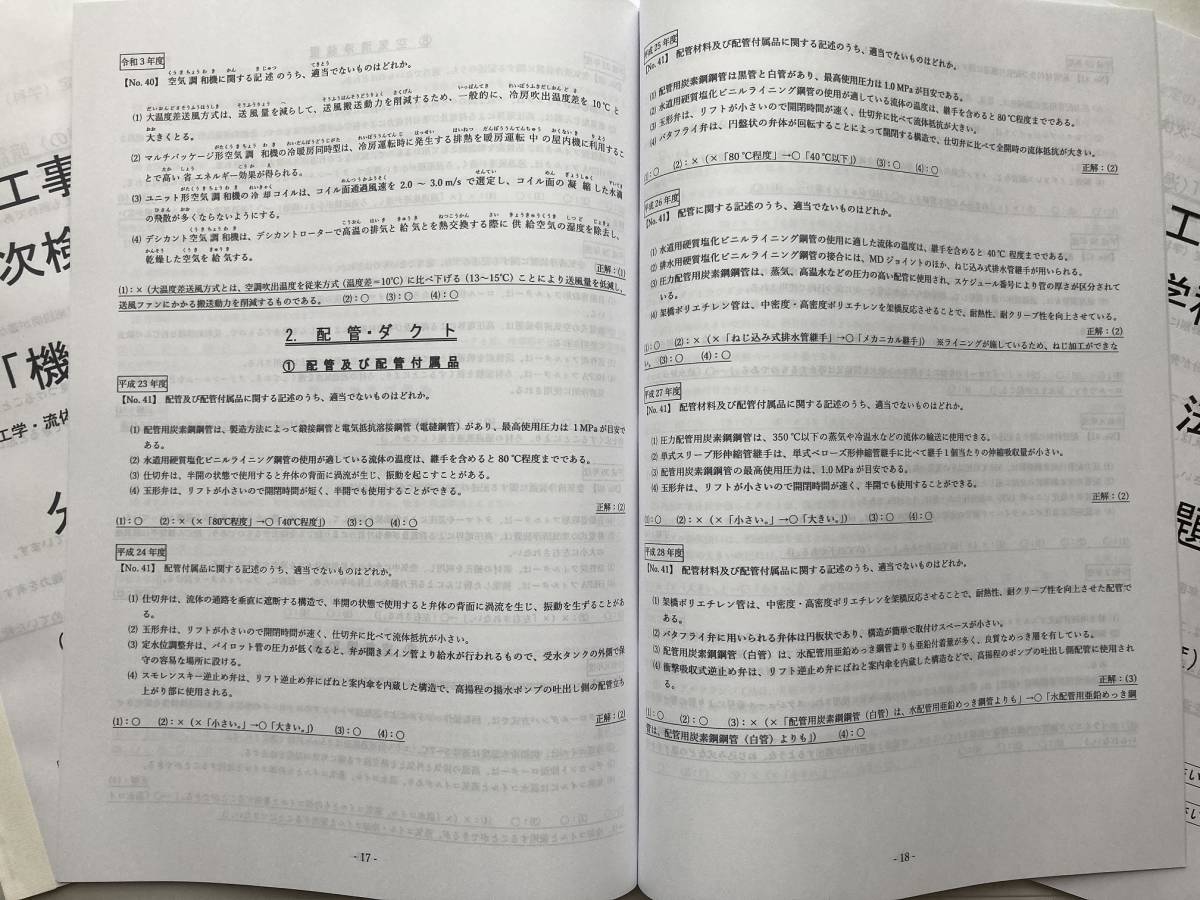 令和3年度
【No. 40】 空気調和機に関する記述のうち、適当でないものはどれか。
(1) 大温度差送風方式は、送風量を減らして、送風搬送動力を削減するため、一般的に、冷房吹出温度差を 10℃と
大きくとる。
(2) マルチパッケージ形空気調和機の冷暖房同時型は、冷房運転時に発生する排熱を暖房運転中の屋内機に利用するこ
とで高い省エネルギー効果が得られる。
(3) ユニット形空気調和機の冷却コイルは、コイル面通過風速を 2.0 ～ 3.0 m/s で選定し、コイル面の凝縮した水滴
の飛散が多くならないようにする。
(4) デシカント空気調和機は、デシカントローターで高温の排気と給気とを熱交換する際に供給空気の湿度を除去し、
乾燥した空気を給気する。
正解：(1)
(1)：×（大温度差送風方式とは、空調吹出温度を従来方式（温度差=10℃）に比べ下げる（13～15℃）ことにより送風量を低減し、
送風ファンにかかる搬送動力を削減するものである。 (2)：○ (3)：○ (4)：○
2. 配管・ダクト
① 配管及び配管付属品
平成 23 年度
【No. 41】 配管及び配管付属品に関する記述のうち、適当でないものはどれか。
(1) 配管用炭素鋼鋼管は、製造方法によって鍛接鋼管と電気抵抗溶接鋼管（電縫鋼管）があり、最高使用圧力は 1 MPa が目安で
ある。
(2) 水道用硬質塩化ビニルライニング鋼管の使用が適している流体の温度は、継手を含めると 80℃程度までである。
(3) 仕切弁は、半開の状態で使用すると弁体の背面に渦流が生じ、振動を起こすことがある。
(4) 玉形弁は、リフトが小さいので開閉時間が短く、半開でも使用することができる。
正解：(2)
(1)：○ (2)：×（×「80℃程度」→○「40℃程度」） (3)：○ (4)：○
平成 24 年度
【No. 41】 配管付属品に関する記述のうち、適当でないものはどれか。
(1) 仕切弁は、流体の通路を垂直に遮断する構造で、半開の状態で使用すると弁体の背面に渦流を生じ、振動を生ずることがあ
る。
(2) 玉形弁は、リフトが小さいので開閉時間が速く、仕切弁に比べて流体抵抗が小さい。
(3) 定水位調整弁は、パイロット管の圧力が低くなると、弁が開きメイン管より給水が行われるもので、受水タンクの外側で保
守の容易な場所に設ける。
(4) スモレンスキー逆止め弁は、リフト逆止め弁にばねと案内傘を内蔵した構造で、高揚程の揚水ポンプの吐出し側の配管立ち
上がり部に使用される。
正解：(2)
(1)：○ (2)：×（×「小さい。」→○「大きい。」） (3)：○ (4)：○
- 17 -
平成 25 年度
【No. 41】 配管材料及び配管付属品に関する記述のうち、適当でないものはどれか。
(1) 配管用炭素鋼鋼管は黒管と白管があり、最高使用圧力は 1.0 MPa が目安である。
(2) 水道用硬質塩化ビニルライニング鋼管の使用が適している流体の温度は、継手を含めると 80℃程度までである。
(3) 玉形弁は、リフトが小さいので開閉時間が速く、仕切弁に比べて流体抵抗が大きい。
(4) バタフライ弁は、円盤状の弁体が回転することによって開閉する構造で、仕切弁に比べて全開時の流体抵抗が大きい。
正解：(2)
(1)：○ (2)：×（×「80℃程度」→○「40℃以下」） (3)：○ (4)：○
平成 26 年度
【No. 41】 配管に関する記述のうち、適当でないものはどれか。
(1) 水道用硬質塩化ビニルライニング鋼管の使用に適した流体の温度は、継手を含めると 40℃ 程度までである。
(2) 排水用硬質塩化ビニルライニング鋼管の接合には、MDジョイントのほか、ねじ込み式排水管継手が用いられる。
(3) 圧力配管用炭素鋼鋼管は、蒸気、高温水などの圧力の高い配管に使用され、スケジュール番号により管の厚さが区分されて
いる。
(4) 架橋ポリエチレン管は、中密度・高密度ポリエチレンを架橋反応させることで、耐熱性、耐クリープ性を向上させている。
正解：(2)
(1)：○ (2)：×（×「ねじ込み式排水管継手」→○「メカニカル継手」） ※ライニングが施しているため、ねじ加工ができな
い。 (3)：○ (4)：○
平成 27 年度
【No. 41】 配管材料及び配管付属品に関する記述のうち、適当でないものはどれか。
(1) 圧力配管用炭素鋼鋼管は、350℃以下の蒸気や冷温水などの流体の輸送に使用できる。
(2) 単式スリーブ形伸縮管継手は、単式ベローズ形伸縮管継手に比べて継手1個当たりの伸縮吸収量が小さい。
(3) 配管用炭素鋼鋼管の最高使用圧力は、1.0 MPa が目安である。
(4) 玉形弁は、リフトが小さいので開閉時間が速く、半開でも使用することができる。
正解：(2)
(1)：○ (2)：×（×「小さい。」→○「大きい。」） (3)：○ (4)：○
平成 28 年度
【No. 41】 配管材料及び配管付属品に関する記述のうち、適当でないものはどれか。
(1) 架橋ポリエチレン管は、中密度・高密度ポリエチレンを架橋反応させることで、耐熱性、耐クリープ性を向上させた配管で
ある。
(2) バタフライ弁に用いられる弁体は円板状であり、構造が簡単で取付けスペースが小さい。
(3) 配管用炭素鋼鋼管（白管）は、水配管用亜鉛めっき鋼管よりも亜鉛付着量が多く、良質なめっき層を有している。
(4) 衝撃吸収式逆止め弁は、リフト逆止め弁にばねと案内傘を内蔵した構造などで、高揚程のポンプの吐出し側配管に使用され
る。
正解：(3)
(1)：○ (2)：○ (3)：×（×「配管用炭素鋼鋼管（白管）は、水配管用亜鉛めっき鋼管よりも」→○「水配管用亜鉛めっき鋼
管は、配管用炭素鋼鋼管（白管）よりも」） (4)：○
- 18 -
工事
次検
「機
工学・流体